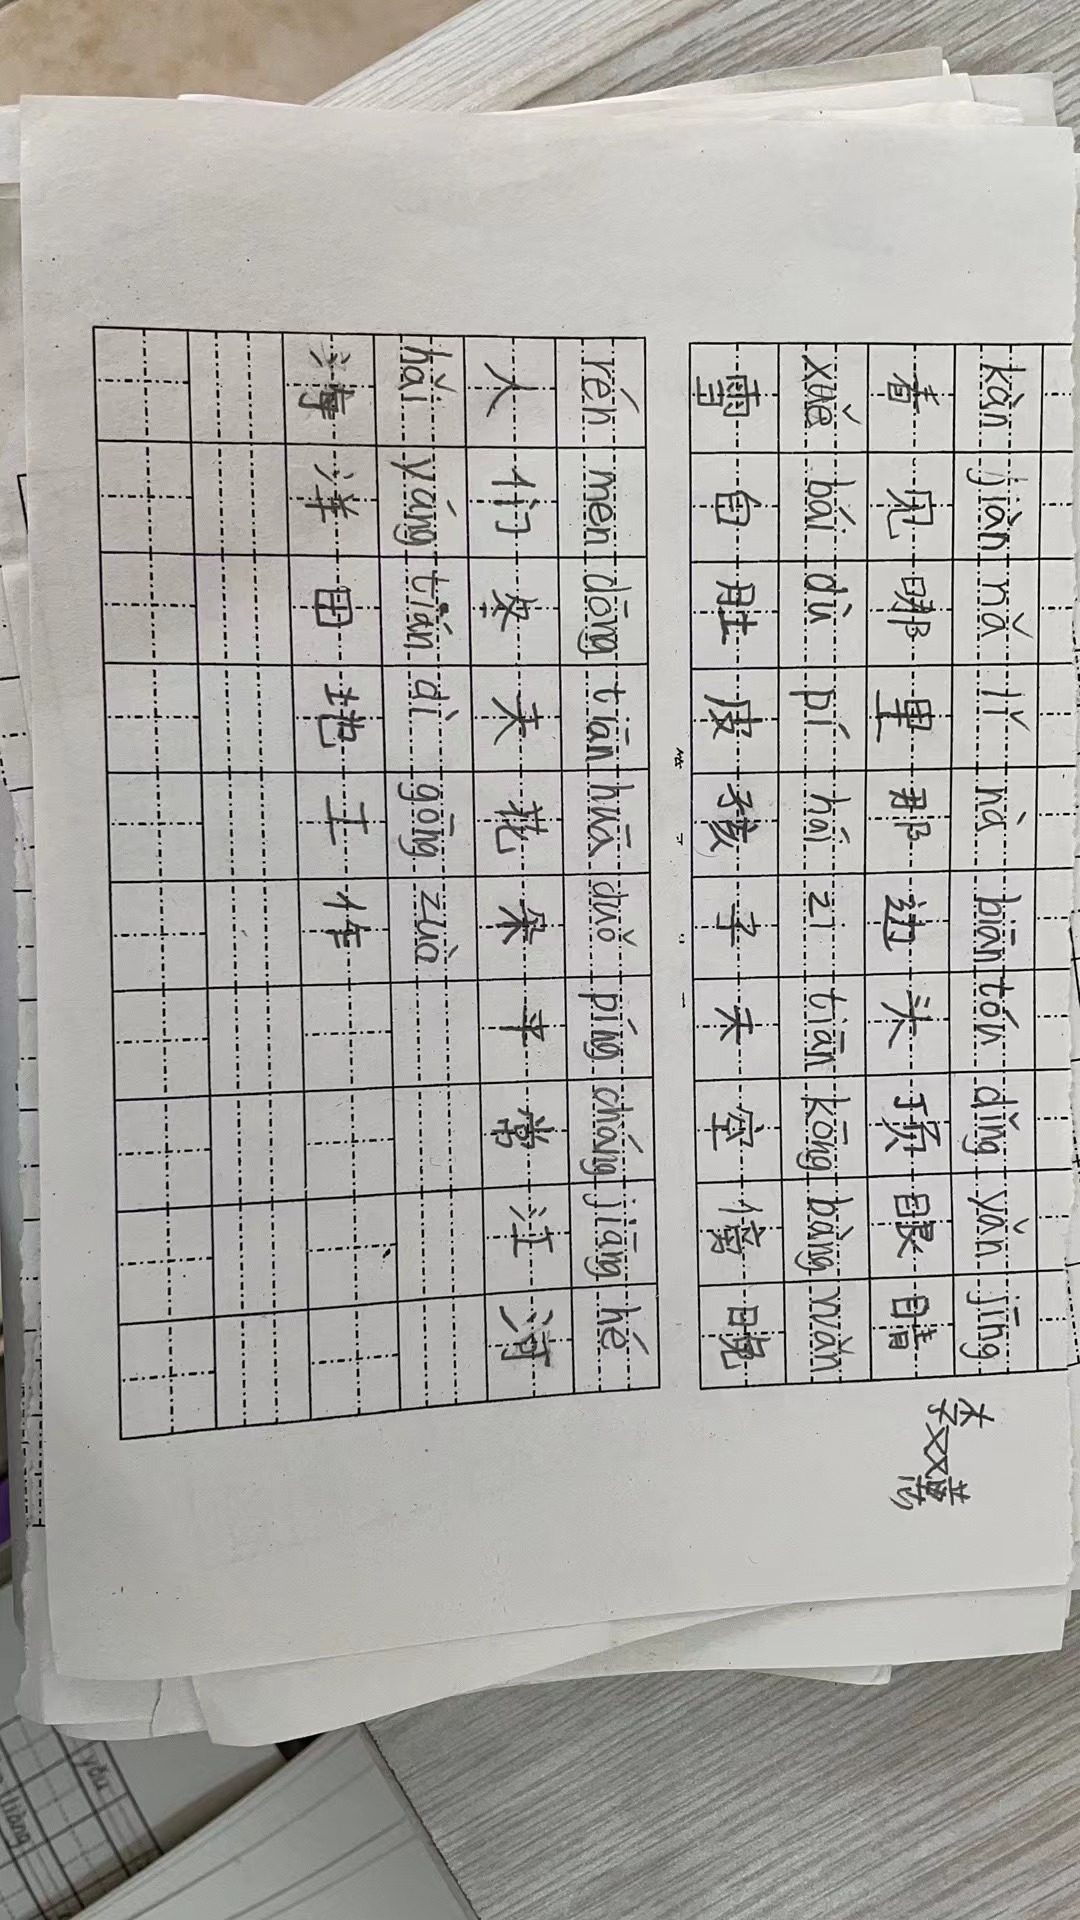 kàn jiàn nǎ lǐ nà biān tóu dǐng yǎn jīng
看 见 哪 里 那 边 头 顶 眼 睛
xuě bái dù pí hái zi tiān kōng bàng wǎn
雪 白 肚 皮 孩 子 天 空 傍 晚
rén men dōng tiān huā duǒ píng cháng jiāng hé
人 们 冬 天 花 朵 平 常 江 河
hǎi yáng tián dì gōng zuò
海 洋 田 地 工 作